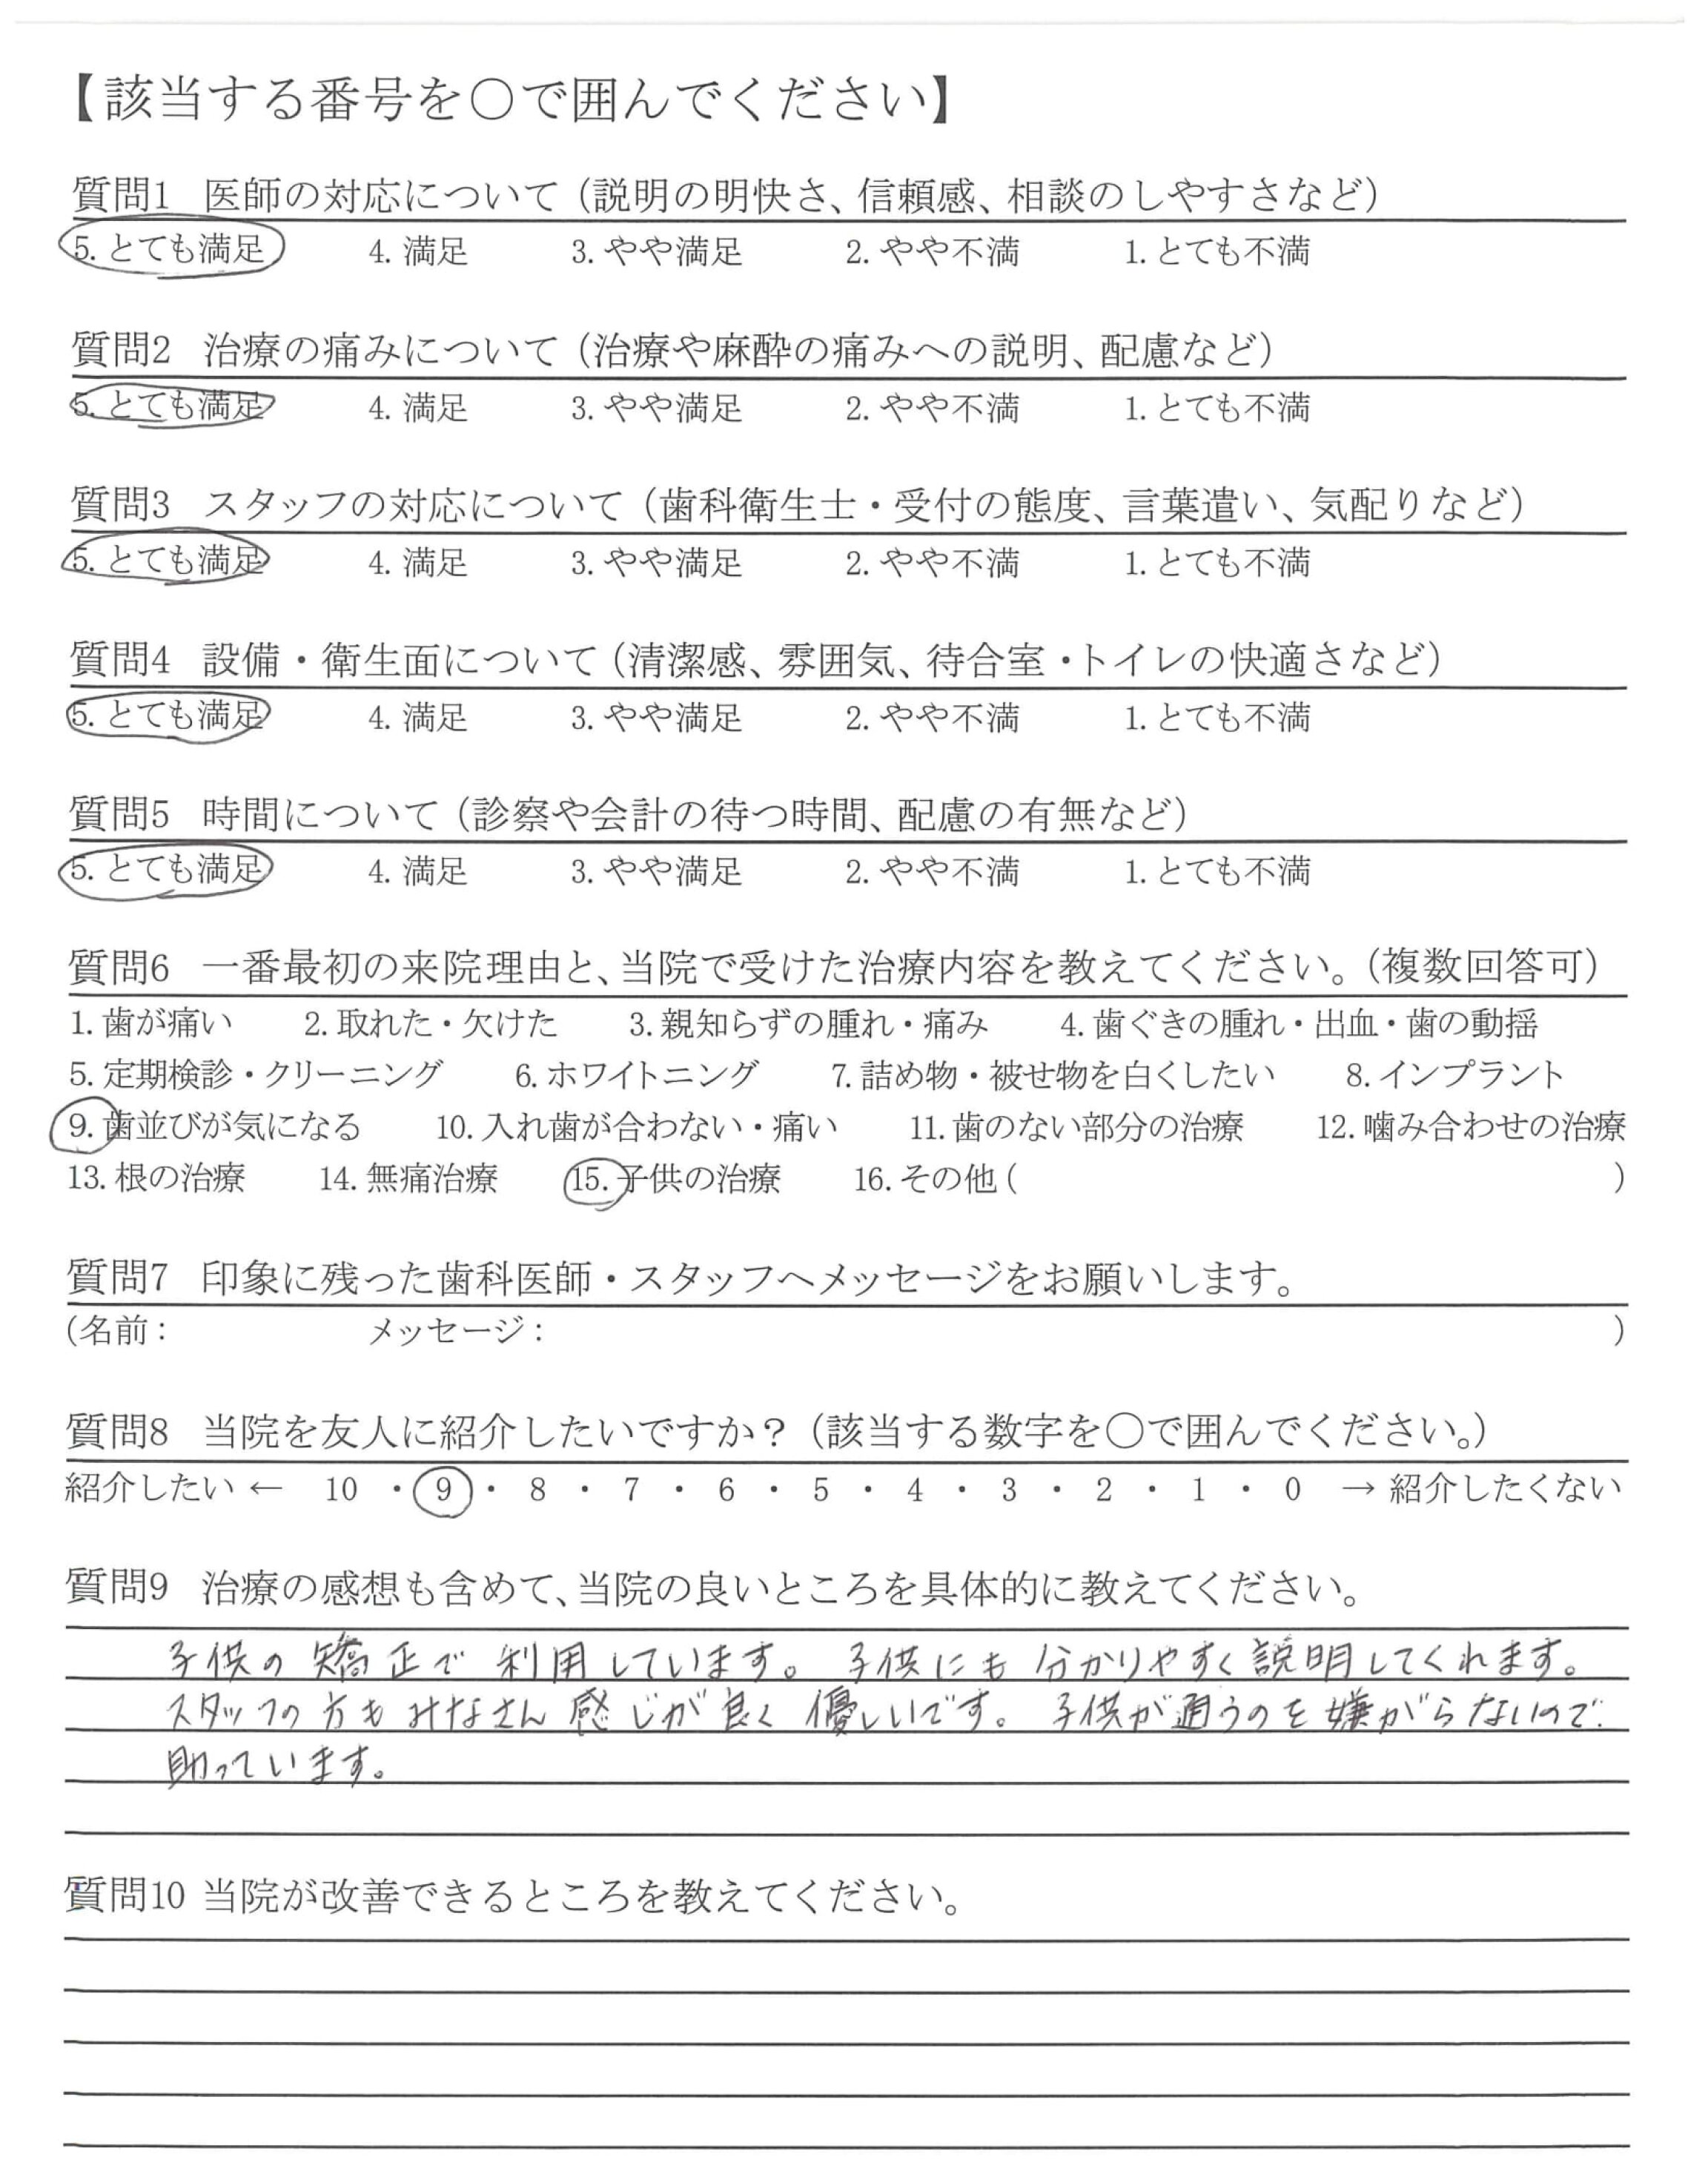 【該当する番号を〇で囲んでください】
質問1 医師の対応について（説明の明快さ、信頼感、相談のしやすさなど）
5. とても満足 4. 満足 3. やや満足 2. やや不満 1. とても不満
質問2 治療の痛みについて（治療や麻酔の痛みへの説明、配慮など）
5. とても満足 4. 満足 3. やや満足 2. やや不満 1. とても不満
質問3 スタッフの対応について（歯科衛生士・受付の態度、言葉遣い、気配りなど）
5. とても満足 4. 満足 3. やや満足 2. やや不満 1. とても不満
質問4 設備・衛生面について（清潔感、雰囲気、待合室・トイレの快適さなど）
5. とても満足 4. 満足 3. やや満足 2. やや不満 1. とても不満
質問5 時間について（診察や会計の待つ時間、配慮の有無など）
5. とても満足 4. 満足 3. やや満足 2. やや不満 1. とても不満
質問6 一番最初の来院理由と、当院で受けた治療内容を教えてください。（複数回答可）
1. 歯が痛い 2. 取れた・欠けた 3. 親知らずの腫れ・痛み 4. 歯ぐきの腫れ・出血・歯の動揺
5. 定期検診・クリーニング 6. ホワイトニング 7. 詰め物・被せ物を白くしたい 8. インプラント
9. 歯並びが気になる 10. 入れ歯が合わない・痛い 11. 歯のない部分の治療 12. 噛み合わせの治療
13. 根の治療 14. 無痛治療 15. 子供の治療 16. その他（ ）
質問7 印象に残った歯科医師・スタッフへメッセージをお願いします。
（名前： メッセージ： ）
質問8 当院を友人に紹介したいですか？（該当する数字を〇で囲んでください。）
紹介したい ← 10 ・ 9 ・ 8 ・ 7 ・ 6 ・ 5 ・ 4 ・ 3 ・ 2 ・ 1 ・ 0 → 紹介したくない
質問9 治療の感想も含めて、当院の良いところを具体的に教えてください。
子供の矯正で利用しています。子供にも分かりやすく説明してくれます。
スタッフの方もみなさん感じが良く優しいです。子供が通うのを嫌がらないので
助っています。
質問10 当院が改善できるところを教えてください。